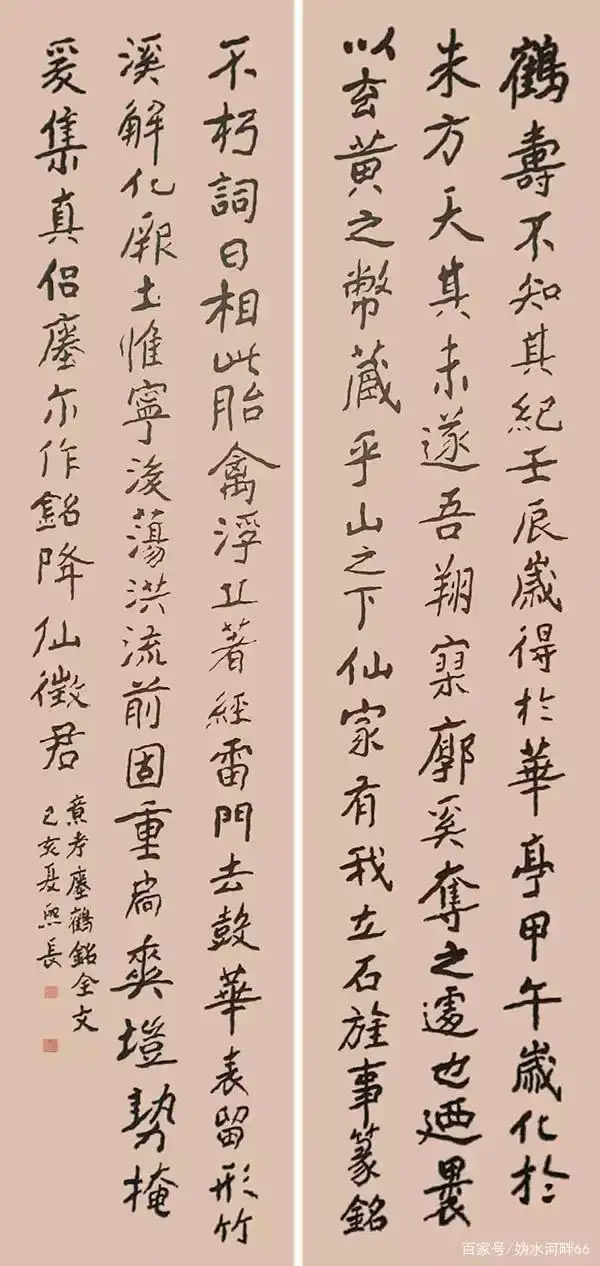 鶴壽不知其紀壬辰歲得於華亭甲午歲化於
朱方天其未遂吾翔寥廓奚奪之遽也迺裹
以玄黃之幣藏乎山之下仙家有我立石旌事篆銘
不朽詞曰相此胎禽浮丘著經雷門去鼓華表留形竹
溪解化厥土惟寧後蕩洪流前固重扃爽塏勢掩
爰集真侶瘞尔作銘降仙徵君
意考瘞鶴銘全文
己亥夏熙長
百家号/妫水河畔66